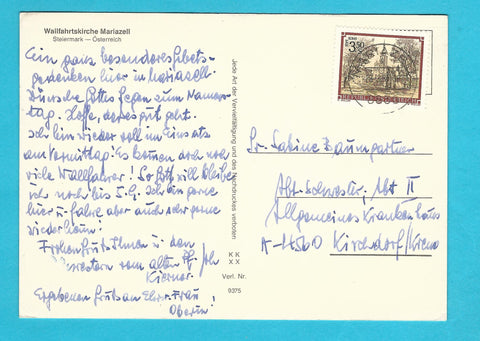 Wallfahrtskirche Mariazell
Steiermark — Österreich
Ein ganz besonderes Gebets-
gedenken hier in Mariazell.
Wünsche Gottes Segen zum Namens-
tag. Hoffe, daß es gut geht.
Ich bin wieder voll im Einsatz
am Vormittag! Es kommen doch noch
viele Wallfahrer! So Gott will bleibe
ich noch bis 5.9. Ich bin gerne
hier u. fahre aber auch sehr gerne
wieder heim!
Frohen Gruß Ihnen u. den
Schwestern vom alten Pfr. Joh
Ergebenen Gruß an Ehrw. Frau
Oberin!
Jede Art der Vervielfältigung und des Nachdruckes verboten
K K
X X
Verl. Nr.
9375
3.50
Sr. Sabine Baumgartner
Abt. Schwester, Abt II
Allgemeines Krankenhaus
A-4560 Kirchdorf/Krems